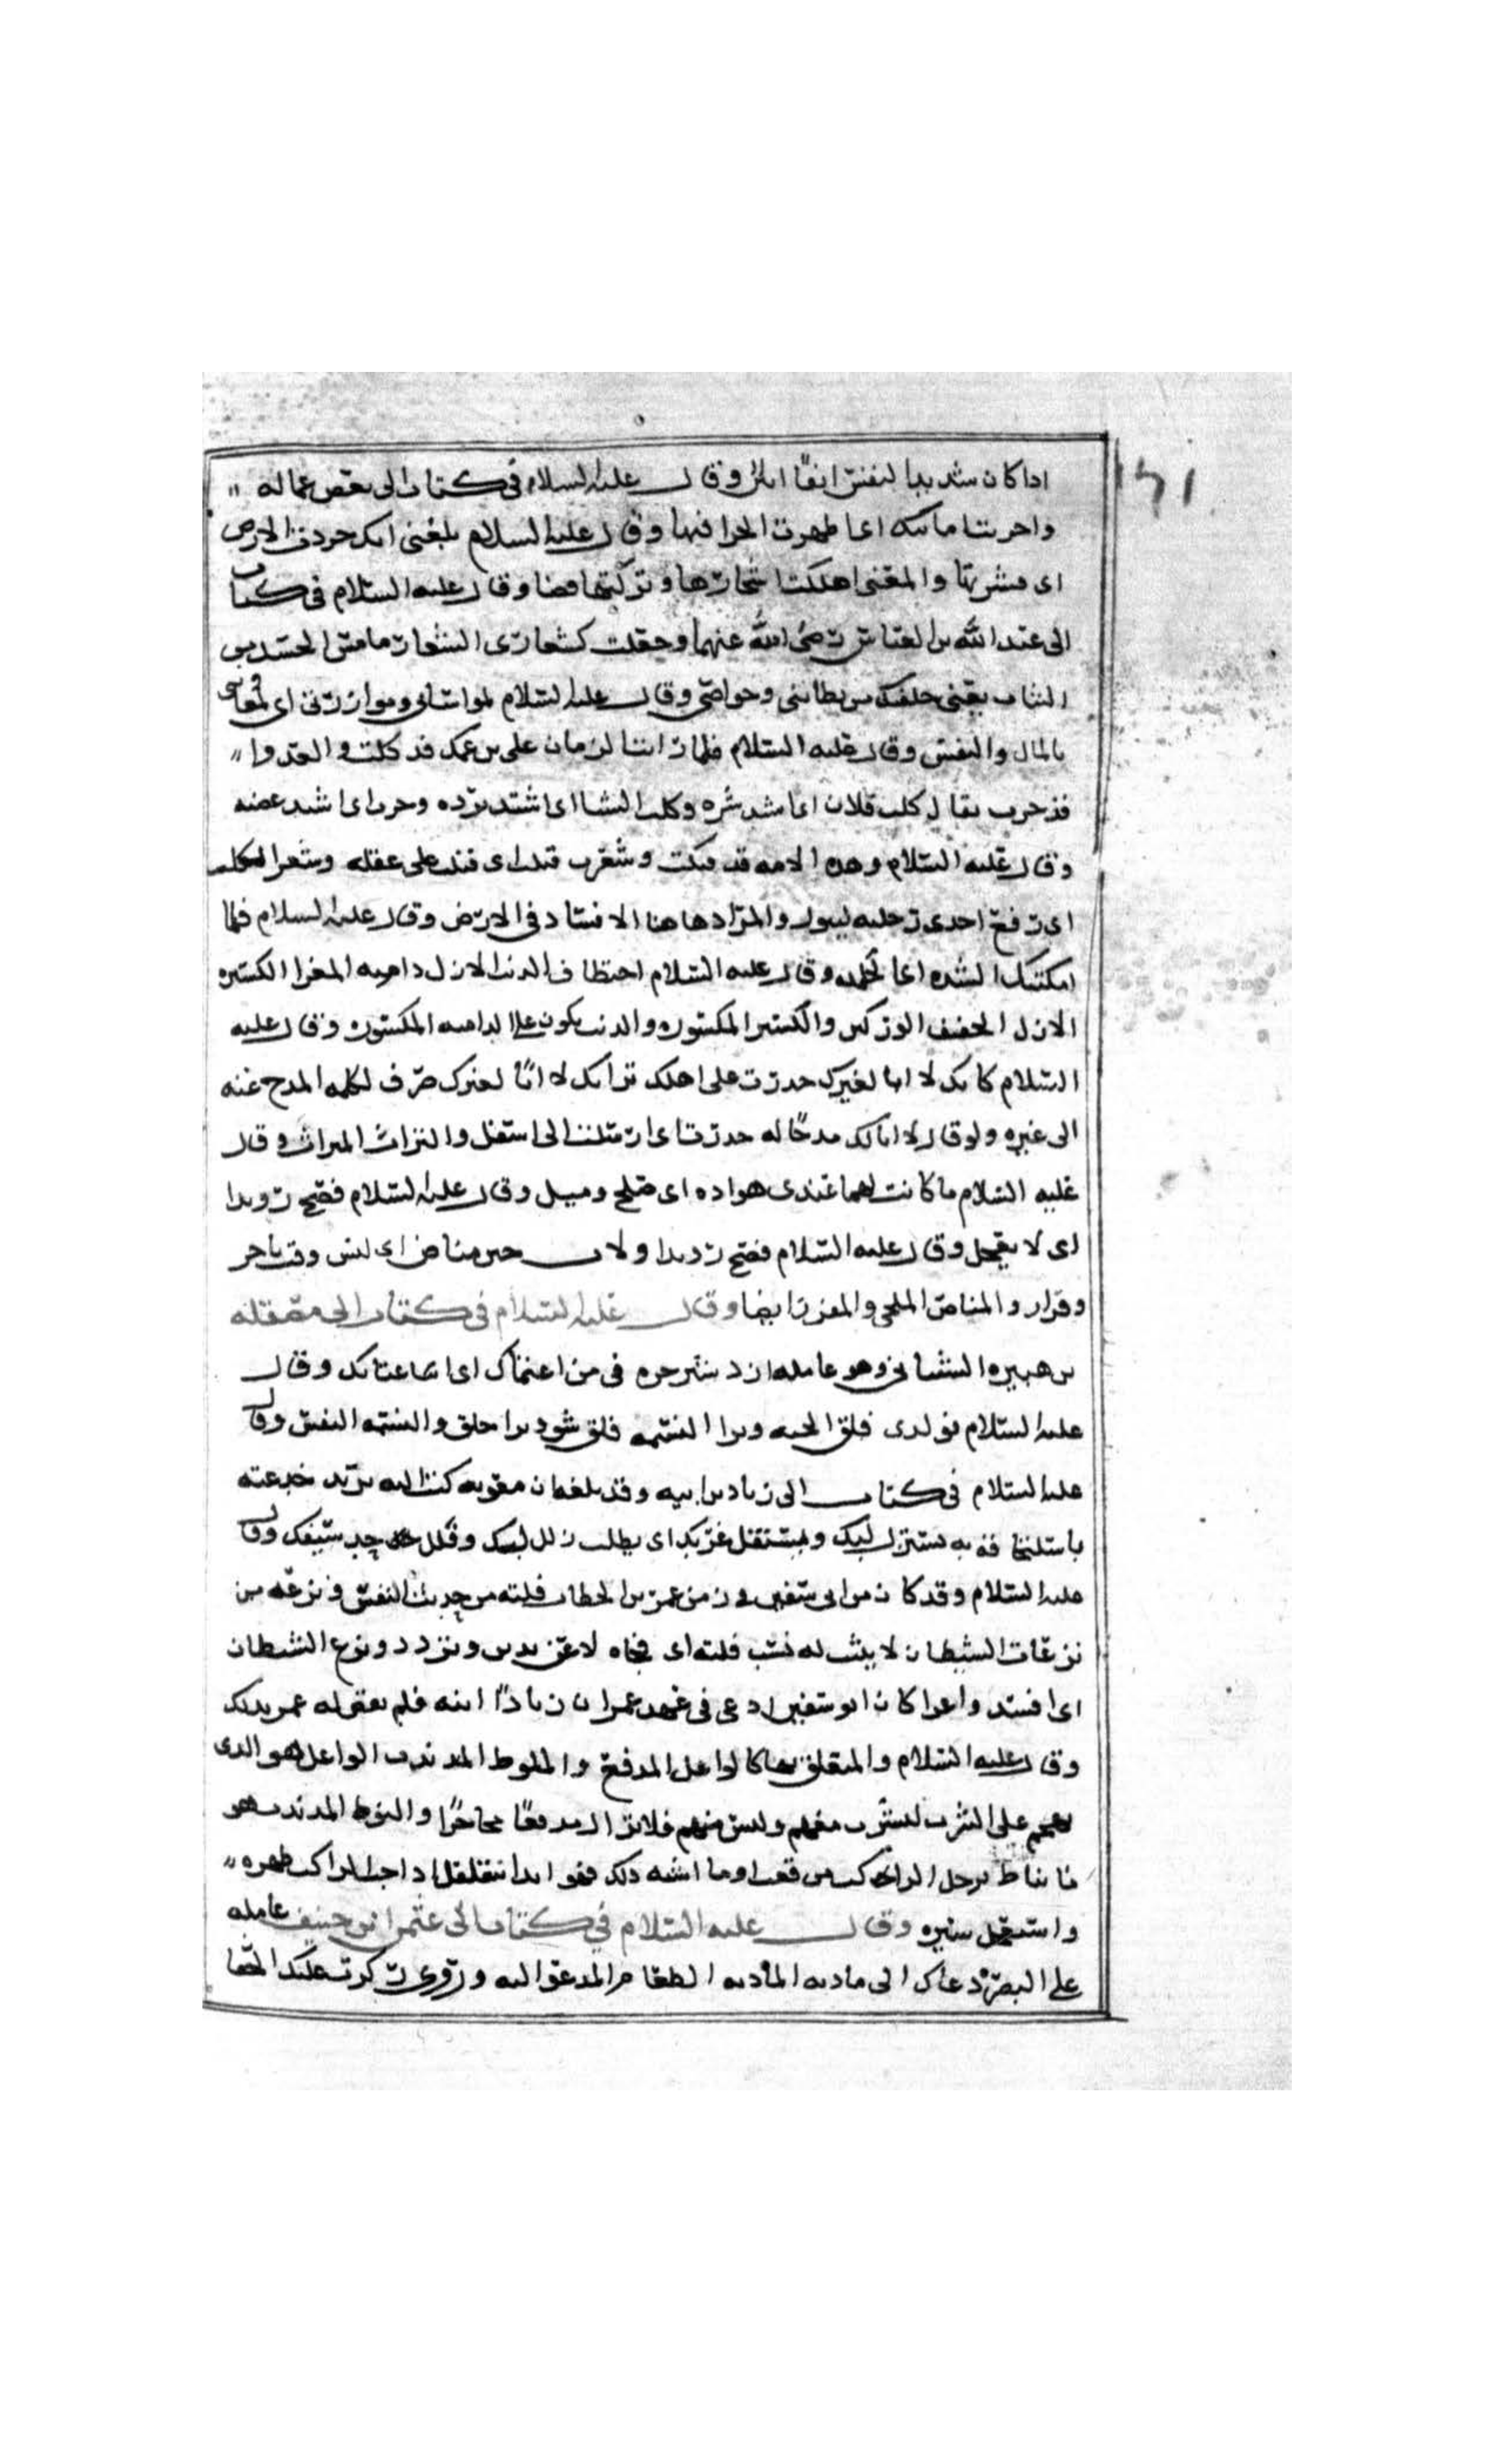 ١٤١
اذا كان شديد النفس انفًا ابيا وقال عليه السلام في كتاب الى بعض عماله
واخزيت امانتك اي اظهرت الخزا فيها وقال عليه السلام بلغني انك جردت الارض
اي قشرتها والمعنى اهلكت اشجارها وتركتها فضا وقال عليه السلام في كتاب
الى عبد الله بن العباس رضي الله عنهما وجعلتك شعاري الشعار ما مس الجسد من
الثياب يعني جعلتك من بطانتي وخواصي وقال عليه السلام لمواساتي وموازرتي اي لمعاونتي
بالمال والنفس وقال عليه السلام فلما رايت الزمان على بن عمك قد كلب والعدوا
قد حرب يقال كلب فلان اي اشد شره وكلب الشتا اي اشتد برده وحرب اي اشتد غضبه
وقال عليه السلام وهذه الامه قد فتكت وشغرت فتكت اي فتك على عقله وشغر الكلب
اي رفع احدى رجليه ليبول والمراد هاهنا الافساد في الارض وقال عليه السلام فلما
امكنتك الشده اي الحمله وقال عليه السلام اختطاف الذئب الازل داميه المعزا الكسيره
الازل الخفيف الوركين والكسير المكسوره والذئب يكون على الداميه المكسوره وقال عليه
السلام كانك لا ابا لغيرك حدرت على اهلك تراثك لا ابًا لغيرك صرف لكلمه المدح عنه
الى غيره ولو قال لا ابا لك مدحًا له حدرت اي ارسلت الى اسفل والتراث الميراث وقال
عليه السلام ما كانت لهما عندي هواده اي صلح وميل وقال عليه السلام فضح رويدا
اي لا تعجل وقال عليه السلام فضح رويدا ولات حين مناص اي ليس وقت تاخر
وفرار والمناص الملجى والمفر ايضا وقال عليه السلام في كتاب الى مصقله
بن هبيره الشيباني وهو عامله ازدشير خره في من اعتماك اي اختاعتامك وقال
عليه السلام فو الذي فلق الحبه وبرا النسمه فلق شق وبرا خلق والنسمه النفس وقال
عليه السلام في كتاب الى زياد بن ابيه وقد بلغه ان معويه كتب اليه يريد خديعته
باستلحاقه به يستزل لبك ويستفل غربك اي يطلب زلل لبك وفلل حد سيفك وقال
عليه السلام وقد كان من ابي سفين في زمن عمر بن الخطاب فلته من حديث النفس ونزغه من
نزغات الشيطان لا يثبت له نسب فلته اي فجاه لا عن تدبر وتردد ونزغ الشيطان
اي افسد واغرا كان ابو سفين ادعى في عهد عمر ان زيادًا ابنه فلم يعقله عمر بذلك
وقال عليه السلام والمتعلق بها كالواغل المدفع والنوط المذبذب الواغل هو الذي
يهجم على الشرب ليشرب معهم وليس منهم فلا يزال مدفعًا محاجزًا والنوط المذبذب هو
ما يناط برحل الراكب من قعب او ما اشبه ذلك فهو ابدا يتقلقل اذا حث الراكب ظهره
واستعجل سيره وقال عليه السلام في كتاب الى عثمن ابن حنيف عامله
على البصره دعاك الى مادبه المأدبه الطعام المدعو اليه وروي كرت عليك الجفا